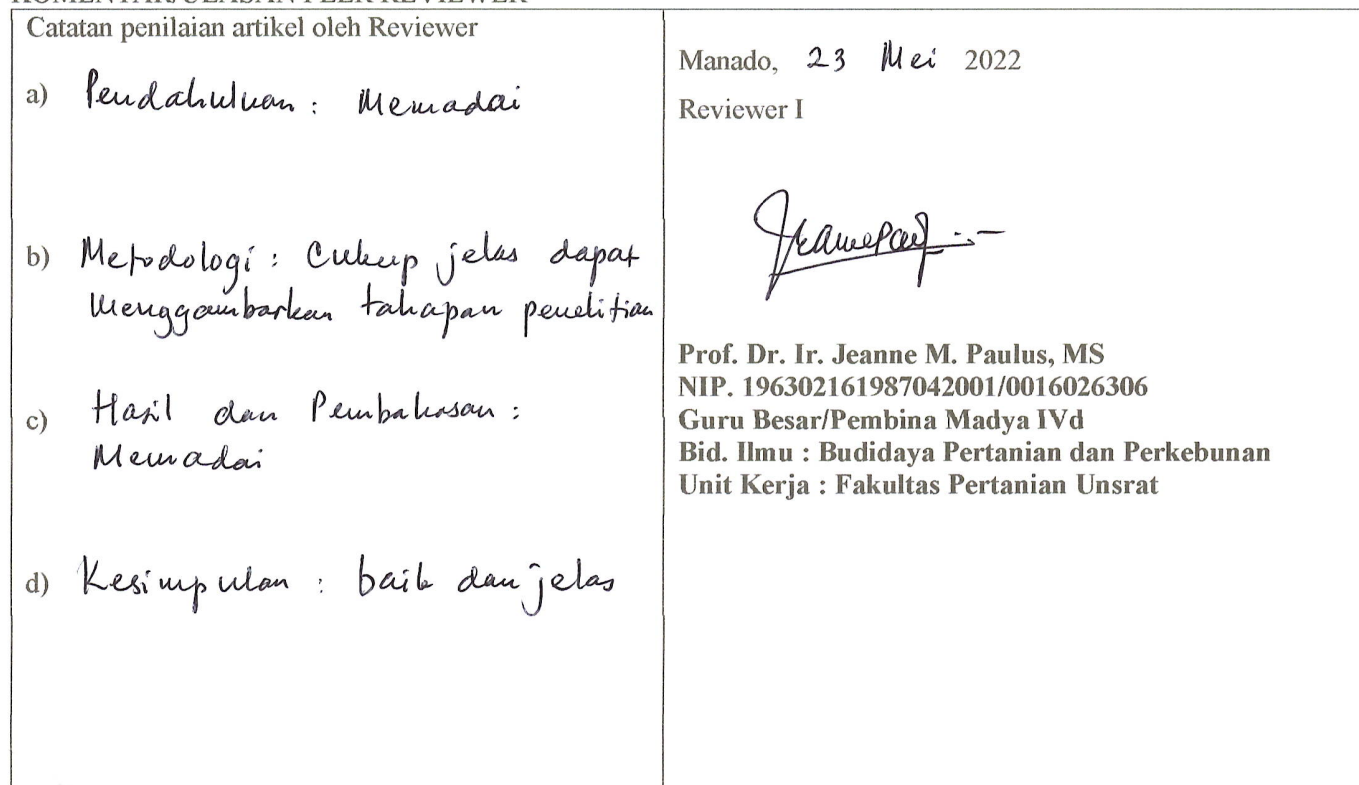 KOMENTAR/ULASAN PEER REVIEWER
Catatan penilaian artikel oleh Reviewer
a) Pendahuluan : Memadai
b) Metodologi : Cukup jelas dapat
menggambarkan tahapan penelitian
c) Hasil dan Pembahasan :
Memadai
d) Kesimpulan : baik dan jelas
Manado, 23 Mei 2022
Reviewer I
Prof. Dr. Ir. Jeanne M. Paulus, MS
NIP. 196302161987042001/0016026306
Guru Besar/Pembina Madya IVd
Bid. Ilmu : Budidaya Pertanian dan Perkebunan
Unit Kerja : Fakultas Pertanian Unsrat